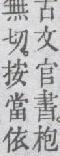 古文官書。枹
無切。按當依